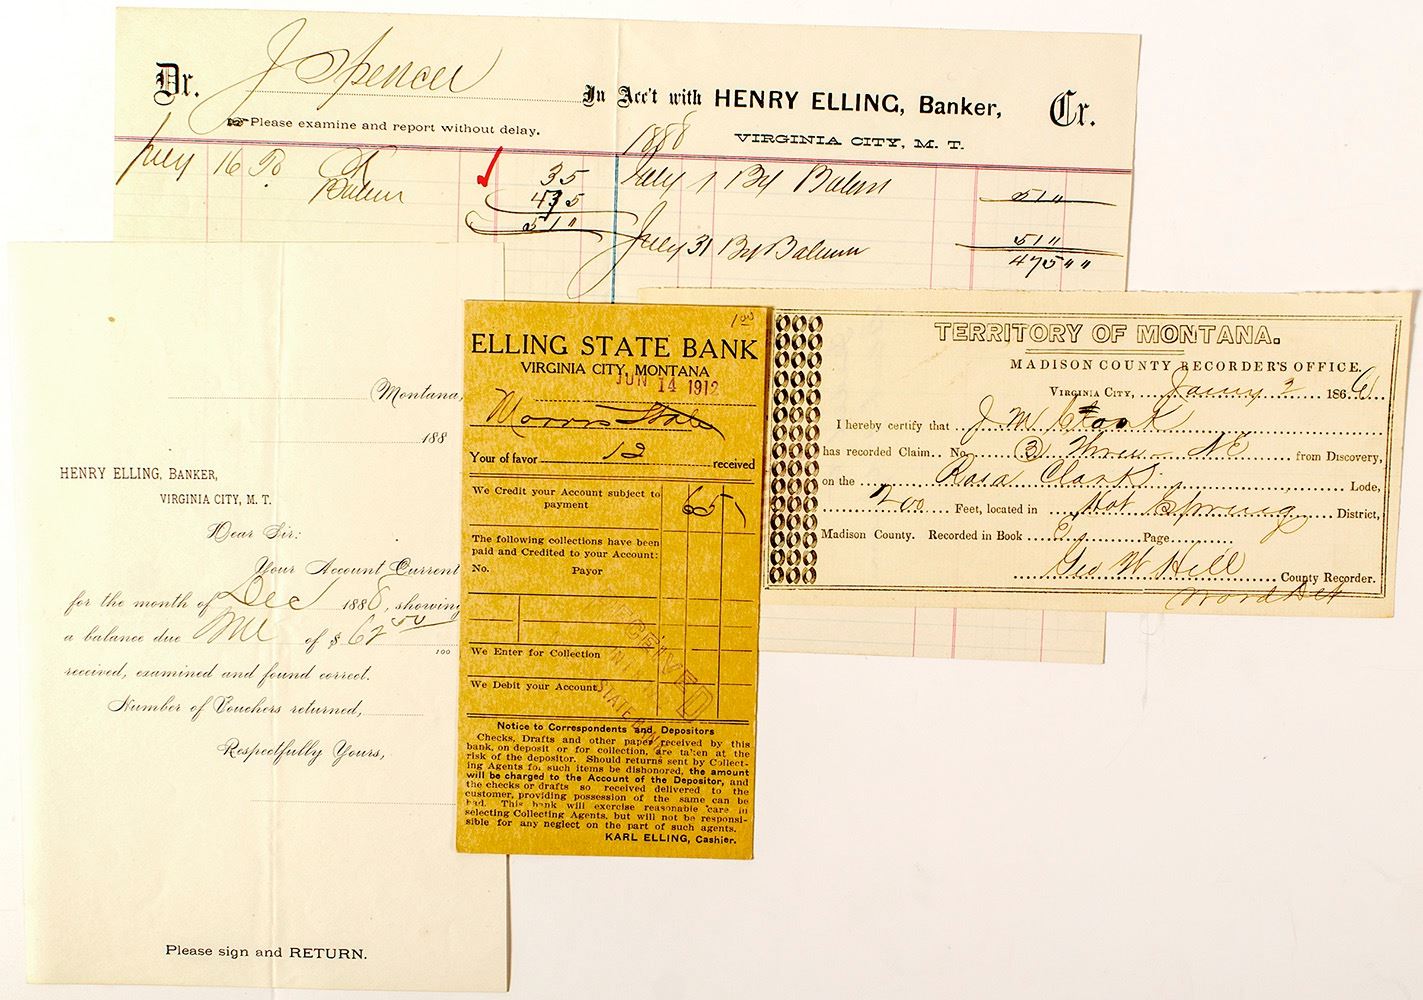 Dr. J Spencer In Acc't with HENRY ELLING, Banker, Cr.
☞Please examine and report without delay.
VIRGINIA CITY, M. T.
1888
July 16 To 35 July 1 By Balan 51"
Balan 475
51" 51"
July 31 By Balaun 475""
Montana,
188
HENRY ELLING, BANKER,
VIRGINIA CITY, M. T.
Dear Sir:
Your Account Current
for the month of Dec 1888, showing
a balance due Me of $ 62 50
100
received, examined and found correct.
Number of Vouchers returned,
Respectfully Yours,
Please sign and RETURN.
1 00
ELLING STATE BANK
VIRGINIA CITY, MONTANA
JUN 14 1912
Morris State
Your of favor 12 received
We Credit your Account subject to
payment 65
The following collections have been
paid and Credited to your Account:
No. Payor
We Enter for Collection
We Debit your Account,
RECEIVED
STATE BANK
Notice to Correspondents and Depositors
Checks, Drafts and other paper received by this
bank, on deposit or for collection, are taken at the
risk of the depositor. Should returns sent by Collect-
ing Agents for such items be dishonored, the amount
will be charged to the Account of the Depositor, and
the checks or drafts so received delivered to the
customer, providing possession of the same can be
had. This bank will exercise reasonable care in
selecting Collecting Agents, but will not be responsi-
sible for any neglect on the part of such agents.
KARL ELLING, Cashier.
TERRITORY OF MONTANA.
MADISON COUNTY RECORDER'S OFFICE.
VIRGINIA CITY, Jany 2 1866
I hereby certify that J. M Cronk
has recorded Claim No. (3) Three NE from Discovery,
on the Rosa Clark Lode,
200 Feet, located in Hot Spring District,
Madison County. Recorded in Book E Page
Geo W Hill
County Recorder.